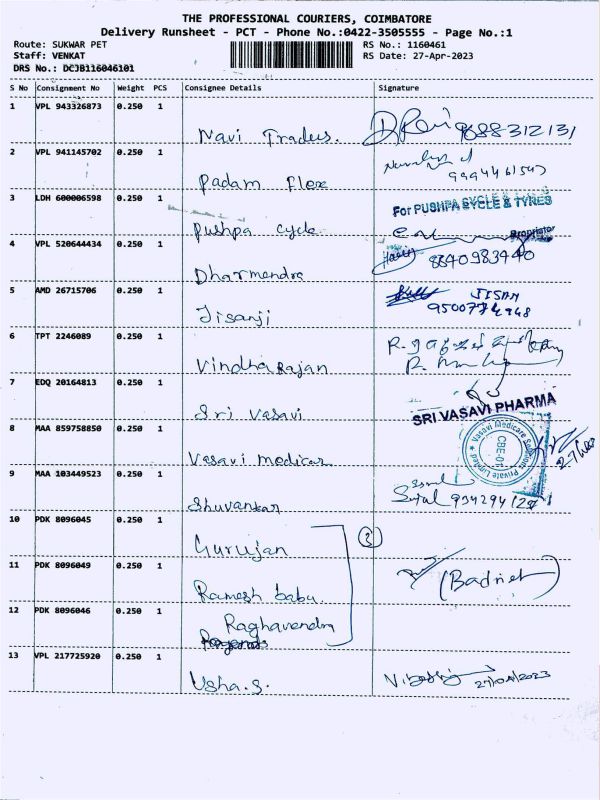 THE PROFESSIONAL COURIERS, COIMBATORE
Delivery Runsheet - PCT - Phone No.:0422-3505555 - Page No.:1
Route: SUKWAR PET
RS No.: 1160461
Staff: VENKAT
RS Date: 27-Apr-2023
DRS No.: DCJB116046101
S No Consignment No Weight PCS Consignee Details Signature
1 VPL 943326873 0.250 1
Navi Traders. 9688312131
2 VPL 941145702 0.250 1
Padam flex
3 LDH 600006598 0.250 1
For PUSHPA CYCLE & TYRES
Pushpa cycle
Proprietor
4 VPL 520644434 0.250 1
Dharmendra 8840983440
5 AMD 26715706 0.250 1
JISAN
Jisanji
6 TPT 2246089 0.250 1
Vindha Rajan
7 EDQ 20164813 0.250 1
SRI VASAVI PHARMA
Sri Vasavi
8 MAA 859758850 0.250 1
Vasavi Medicare Solutions Private Limited
CBE-01
Vasavi medicar
9 MAA 103449523 0.250 1
Shuvankar
10 PDK 8096045 0.250 1
Gurujan
3
11 PDK 8096049 0.250 1
Ramesh babu
12 PDK 8096046 0.250 1
Raghavendra
13 VPL 217725920 0.250 1
Usha.S. 27/04/2023